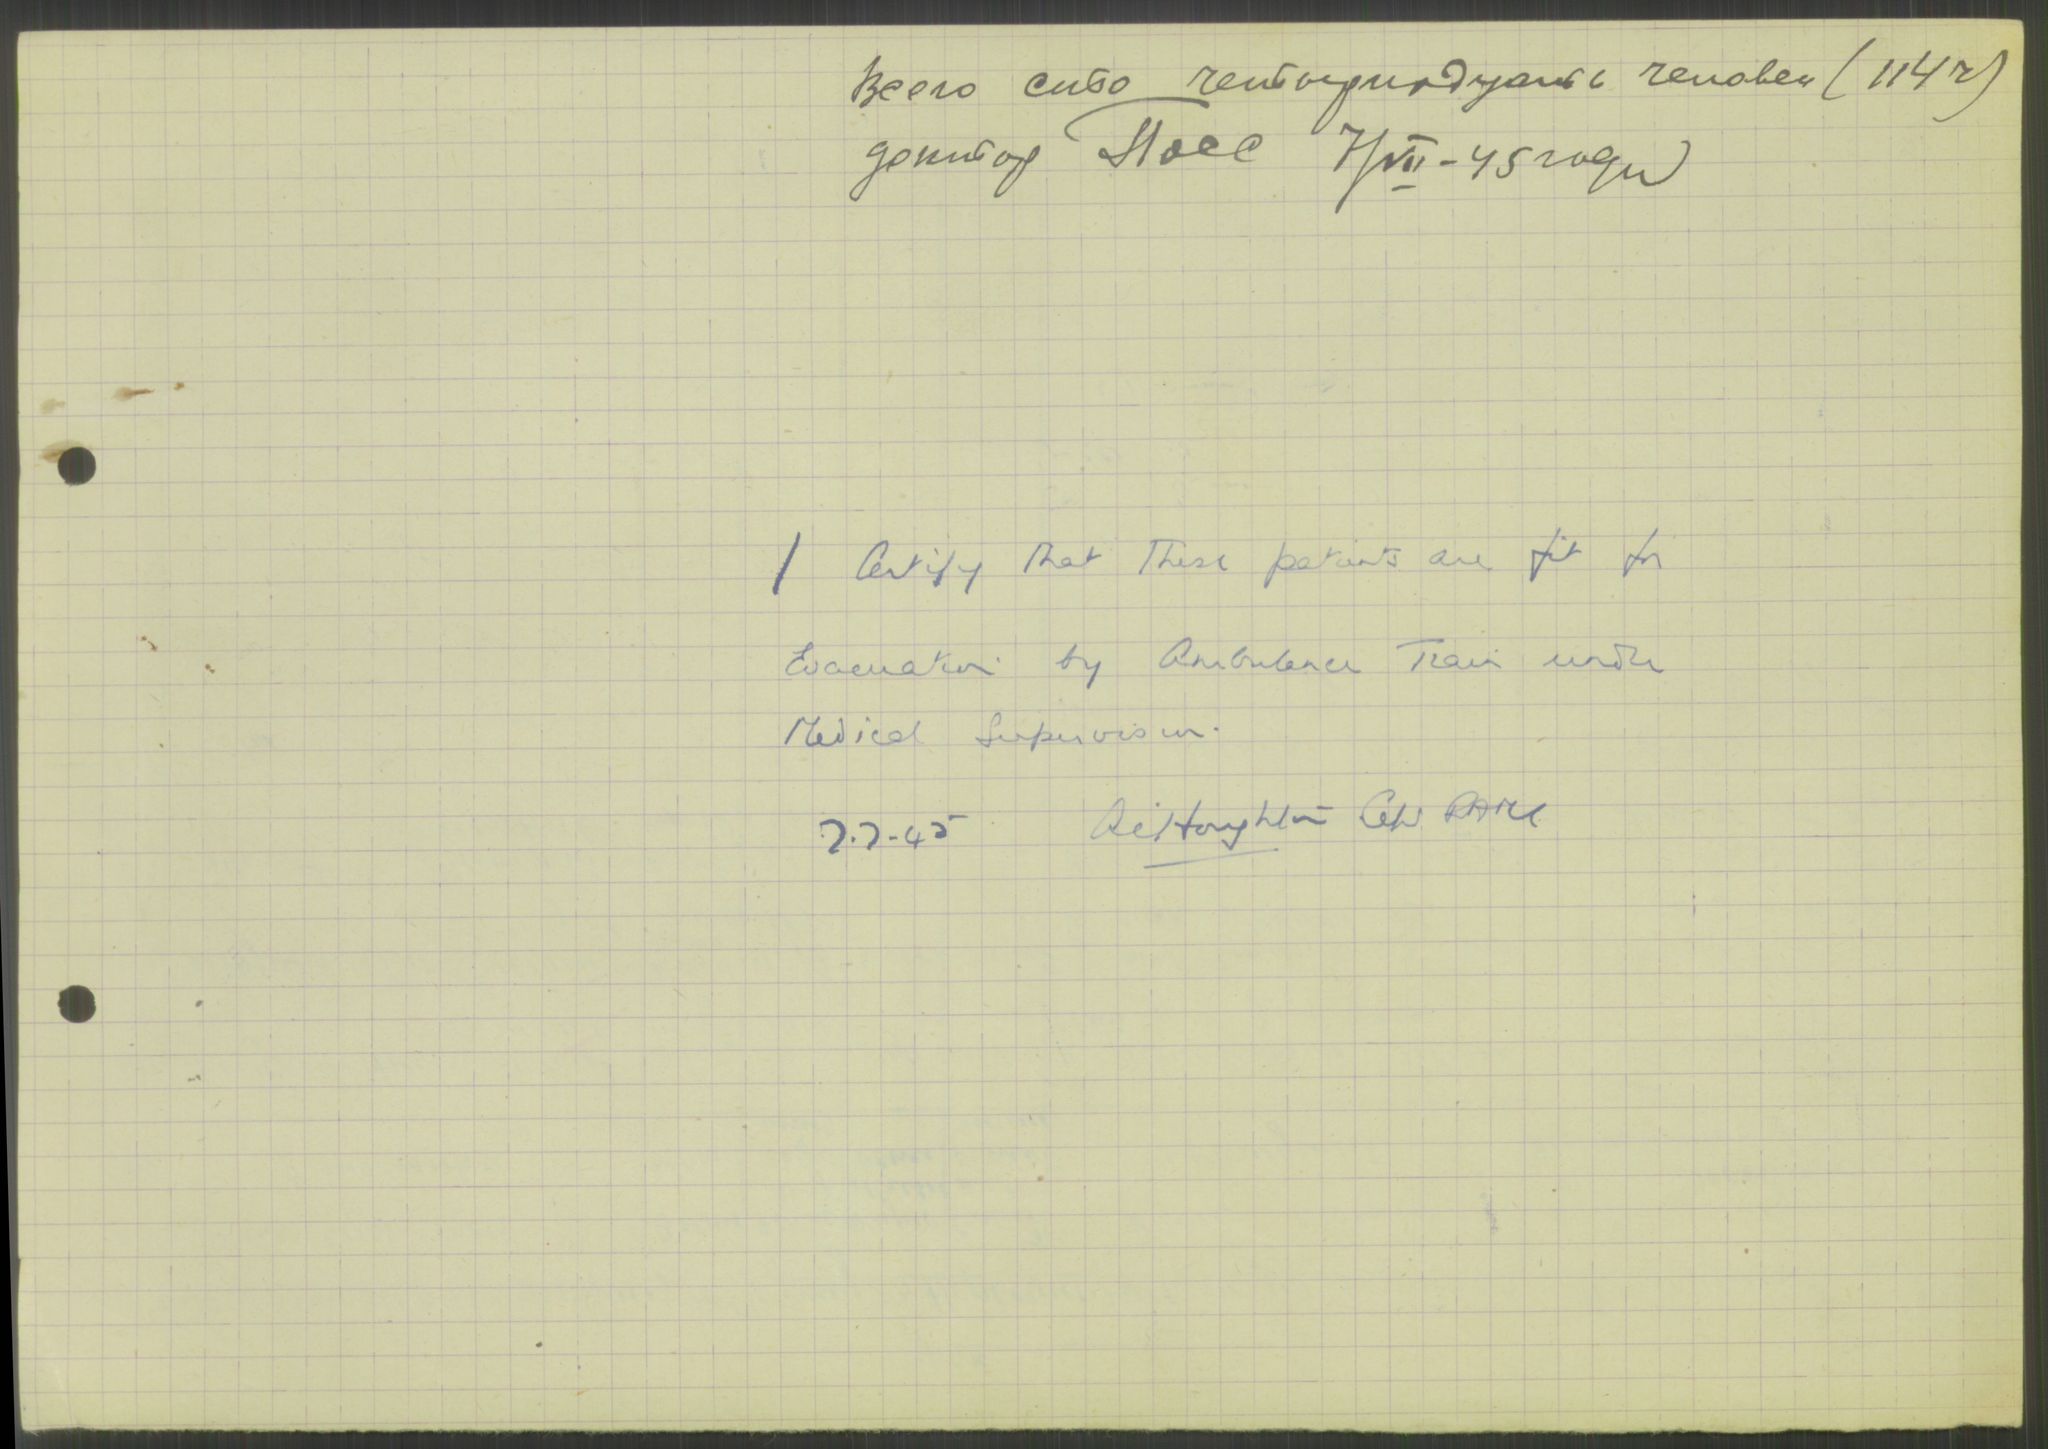 Всего сито четырнадцать человек (114 ч)
доктор Посс 7/VII - 45 годы
I Certify that these patients are fit for
Evacuation by Ambulance Train under
Medical Supervision.
7.7-45 Houghton Capt RAMC